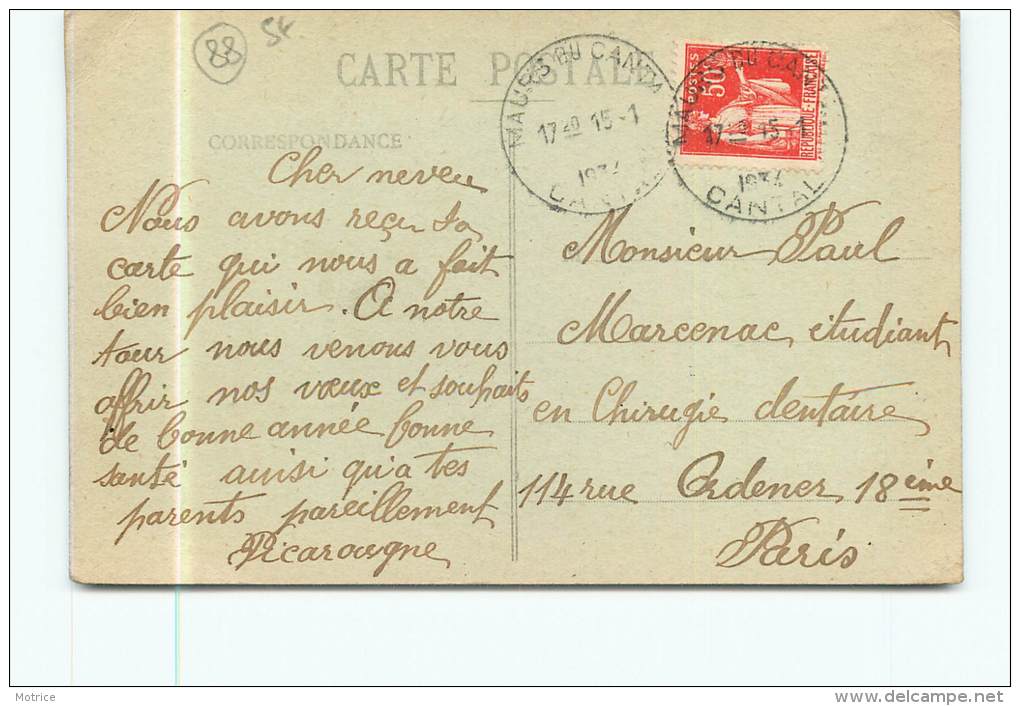 88
CARTE POSTALE
CORRESPONDANCE
MAURS DU CANTAL
17 20 15-1
1934
CANTAL
MAURS DU CA
17 15 1
1934
CANTAL
POSTES
50c
REPUBLIQUE FRANÇAISE
Cher neveu
Nous avons reçu ta
carte qui nous a fait
bien plaisir. A notre
tour nous venons vous
offrir nos vœux et souhaits
de bonne année bonne
santé ainsi qu'a tes
parents pareillement
Picarougne
Monsieur Paul
Marcenac étudiant
en Chirugie dentaire
114 rue Ordener 18ème
Paris
Motrice
www.delcampe.net